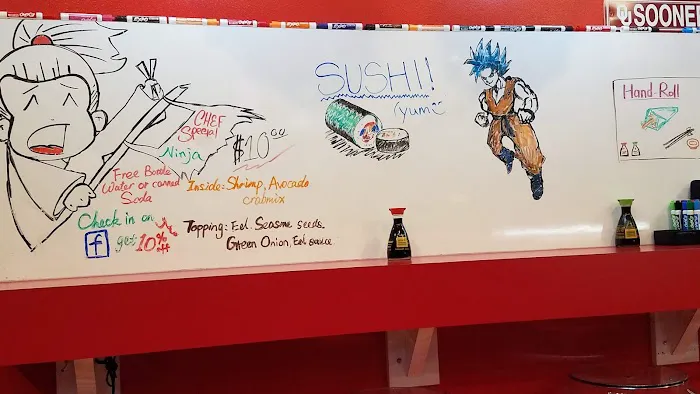 SOONER
SUSHI!
(yum
Hand-Roll
CHEF
Special
Ninja
$10.00
Free Bottle
Water or canned
Soda
Inside: Shrimp, Avocado
crabmix
Check in on
f get 10% off
Topping: Eel. Seasme seeds.
Green Onion, Eel sauce